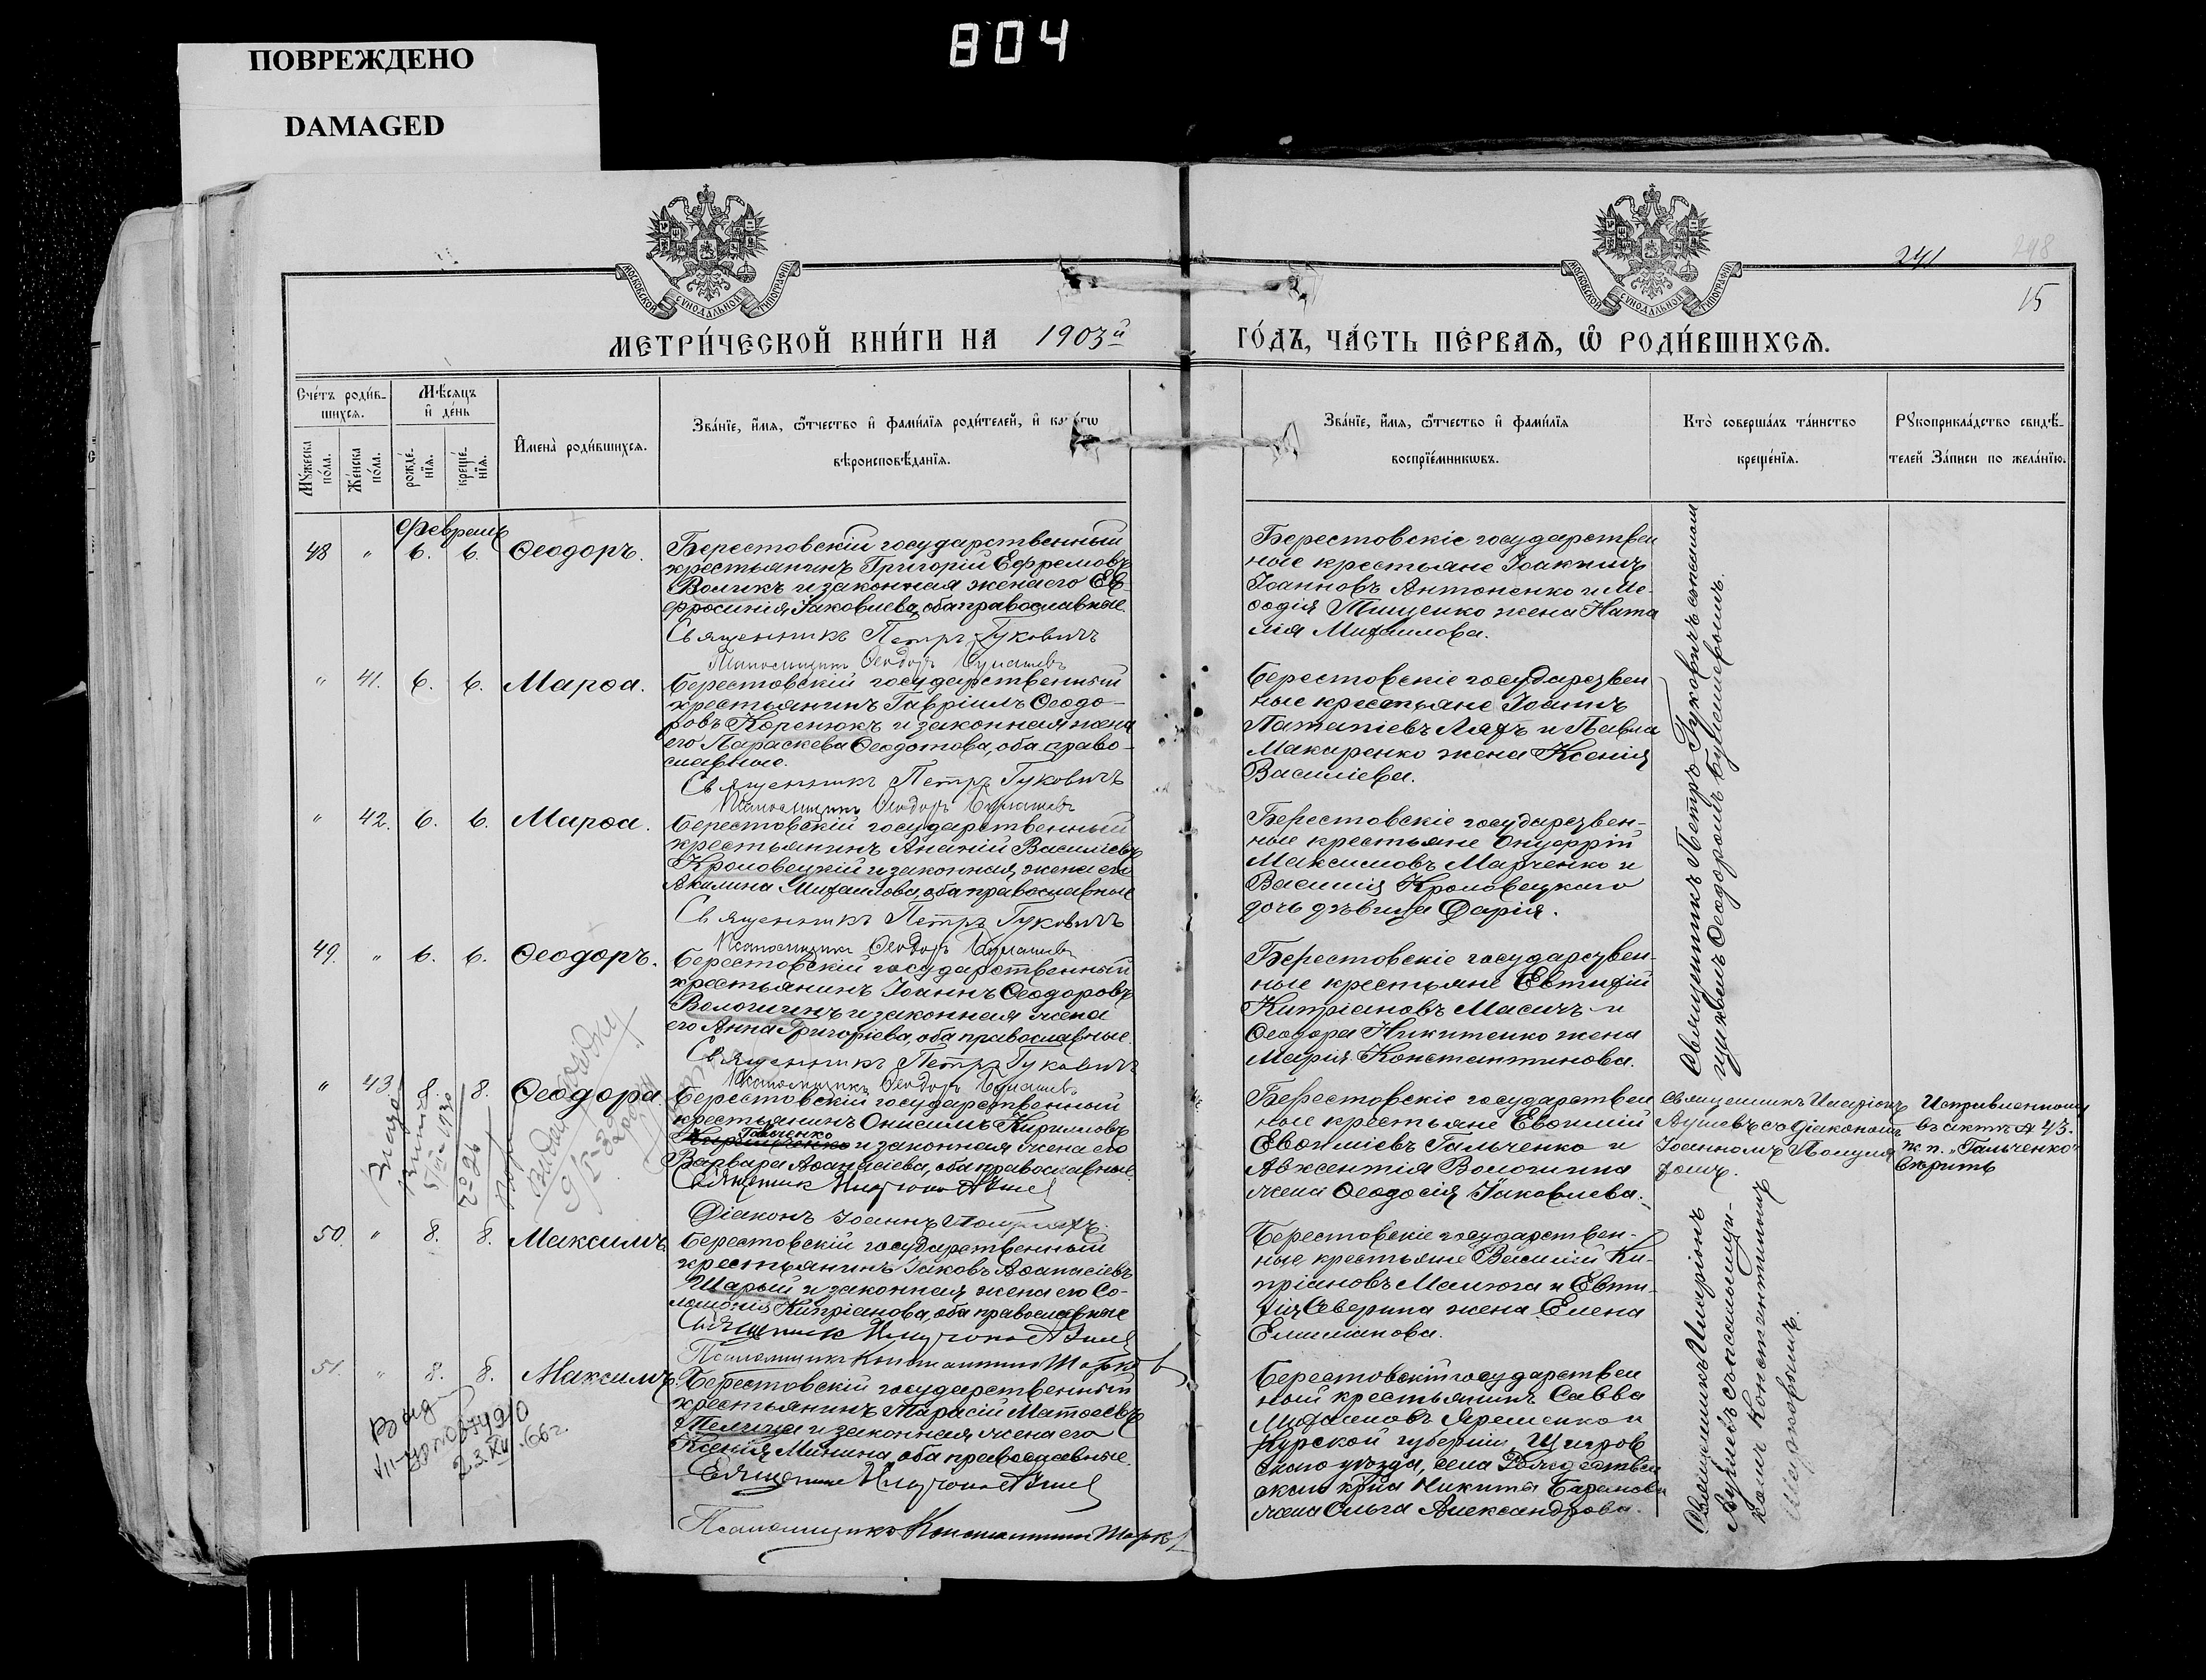 804
ПОВРЕЖДЕНО
DAMAGED
МОСКОВСКОЙ СѴНОДАЛЬНОЙ ТИПОГРАФІИ
МОСКОВСКОЙ СѴНОДАЛЬНОЙ ТИПОГРАФІИ
241
298
15
МЕТРИ́ЧЕСКОЙ КНИ́ГИ НА 1903й
ГО́ДЪ, ЧА́СТЬ ПЕ́РВАѦ, Ѡ҆ РОДИ́ВШИХСѦ.
Сче́тъ роди́в-
шихсѧ.
Мꙋ́жеска по́ла.
Же́нска по́ла.
Мѣ́сѧцъ
и҆ де́нь
рожде́-
нїѧ.
креще́-
нїѧ.
И҆мена̀ роди́вшихсѧ.
Зва́нїе, и҆́мѧ, ѻ҆́тчество и҆ фами́лїѧ роди́телей, и҆ ка
вѣроисповѣ́данїѧ.
Зва́нїе, и҆́мѧ, ѻ҆́тчество и҆ фами́лїѧ
воспрїе́мникѡвъ.
Кто̀ соверша́лъ та́инство
креще́нїѧ.
Рꙋкоприкла́дство свидѣ́-
телей За́писи по жела́нїю.
Февраль
48 " 6. 6. Ѳеодоръ.
Берестовскій государственный
крестьянинъ Григорій Ефремовъ
Воликъ и законная жена его Ев-
фросинія Іаковлева, оба православные
Священникъ Петръ Гуковичъ
Псаломщикъ Ѳеодоръ
Берестовскіе государствен
ные крестьяне Іоакимъ
Іоанновъ Антоненко и Ме-
ѳодія Тищенко жена Ната
лія Михаилова.
" 41. 6. 6. Марѳа.
Берестовскій государственный
крестьянинъ Гавріилъ Ѳеодо-
ровъ Коренюкъ и законная жена
его Параскева Ѳеодотова, оба право-
славные.
Священникъ Петръ Гуковичъ
Псаломщикъ Ѳеодоръ
Берестовскіе государствен
ные крестьяне Іоаннъ
Потапіевъ Ляхъ и Павла
Макаренко жена Ксенія
Василіева.
" 42. 6. 6. Марѳа.
Берестовскій государственный
крестьянинъ Ананій Василіевъ
Кроловецкій и законная жена его
Акилина Михаилова, оба православные
Священникъ Петръ Гуковичъ
Псаломщикъ Ѳеодоръ
Берестовскіе государствен-
ные крестьяне Онуфрій
Максимовъ Марченко и
Василія Кроловецкаго
дочь дѣвица Дарія.
49. " 6. 6. Ѳеодоръ.
Берестовскій государственный
крестьянинъ Іоаннъ Ѳеодоровъ
Вологинъ и законная жена
его Анна Григоріева, оба православные.
Священникъ Петръ Гуковичъ
Псаломщикъ Ѳеодоръ
Берестовскіе государствен-
ные крестьяне Евтихій
Кипріановъ Масичъ и
Ѳеодора Никитенко жена
Марія Константинова.
Священникъ Петръ Гуковичъ
Ѳеодоромъ
" 43. 8. 8. Ѳеодора
Берестовскій государственный
крестьянинъ Онисимъ Кирилловъ
Гальченко
и законная жена его
Варвара Аѳанасіева, оба православные.
Священникъ
Діаконъ Іоаннъ
Берестовскіе государствен
ные крестьяне Евѳимій
Евѳиміевъ Гальченко и
Авксентія Вологина
жена Ѳеодосія Іаковлева.
Священникъ Иларіонъ
съ діакономъ
Іоанномъ
въ актѣ № 43.
ж. п. "Гальченко"
вѣрить
50. " 8. 8. Максимъ.
Берестовскій государственный
крестьянинъ Іаковъ Аѳанасіевъ
Шарый и законная жена его Со-
ломонія Кипріанова, оба православные
Священникъ
Псаломщикъ Константинъ
Берестовскіе государствен-
ные крестьяне Василій Ки-
пріановъ Малюга и Евти-
хія Аверина жена Елена
Емиліанова.
51. " 8. 8. Максимъ.
Берестовскій государственный
крестьянинъ Тарасій Матѳеевъ
Телица и законная жена его
Ксенія Минина, оба православные.
Священникъ
Псаломщикъ Константинъ
Берестовскій государствен
ный крестьянинъ Савва
Михаиловъ Яременко и
Курской губерніи, Щигров
скаго уѣзда, села Рождествен
скаго Никиты Баранова
жена Ольга Александрова.
Священникъ Иларіонъ
съ псаломщи-
комъ Константиномъ
23.XII.66г.